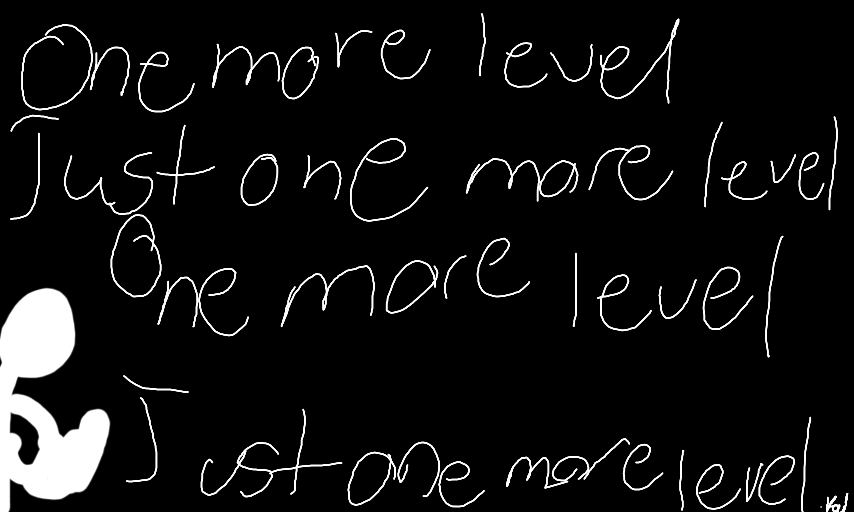 One more level
Just one more level
One more level
Just one more level